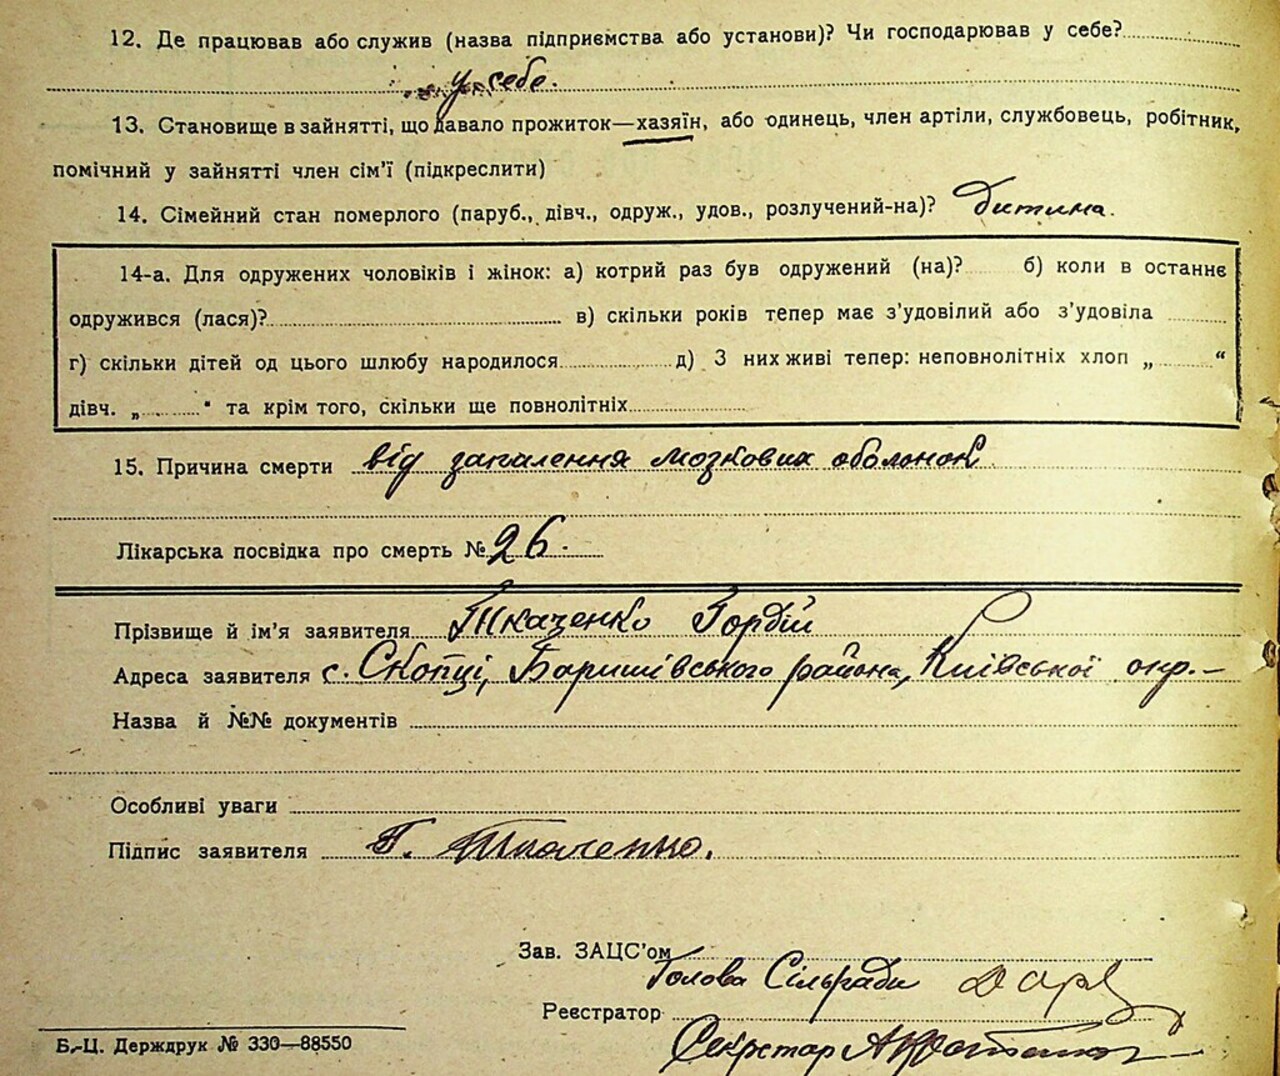 12. Де працював або служив (назва підприємства або установи)? Чи господарював у себе?
у себе.
13. Становище в зайнятті, що давало прожиток—хазяїн, або одинець, член артіли, службовець, робітник,
помічний у зайнятті член сім'ї (підкреслити)
14. Сімейний стан померлого (паруб., дівч., одруж., удов., розлучений-на)? Дитина.
14-а. Для одружених чоловіків і жінок: а) котрий раз був одружений (на)? б) коли в останнє
одружився (лася)? в) скільки років тепер має з'удовілий або з'удовіла
г) скільки дітей од цього шлюбу народилося д) З них живі тепер: неповнолітніх хлоп „ “
дівч. „ “ та крім того, скільки ще повнолітніх
15. Причина смерти від запалення мозкових оболонок
Лікарська посвідка про смерть № 26.
Прізвище й ім'я заявителя Ткаченко Гордій
Адреса заявителя с. Скопці, Баришівського району, Київської окр.-
Назва й №№ документів
Особливі уваги
Підпис заявителя Г. Ткаченко.
Зав. ЗАЦС'ом
Голова Сільради
Реєстратор
Секретар
Б.-Ц. Держдрук № 330—88550